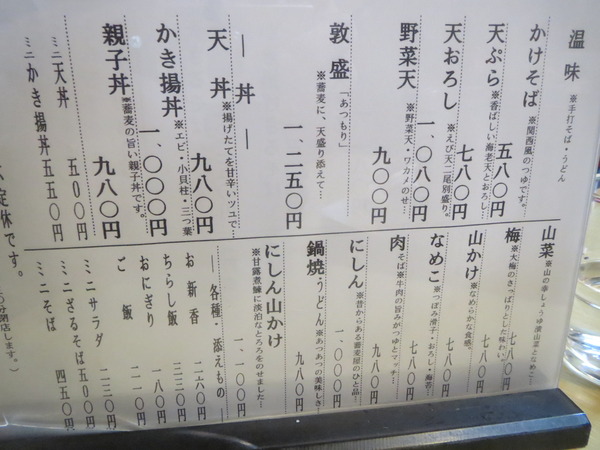 温味 ※手打そば・うどん
かけそば ※関西風のつゆです。 五八〇円
天ぷら ※香ばしい海老天とおろし… 七八〇円
天おろし ※えび天二尾別盛り。 一、〇八〇円
野菜天 ※野菜天・ワカメのせ… 九〇〇円
敦盛 「あつもり」 ※蕎麦に、天盛り添えて… 一、二五〇円
― 丼 ―
天丼 ※揚げたてを甘辛いツユで… 九八〇円
かき揚丼 ※エビ・小貝柱・三つ葉 一、〇〇〇円
親子丼 ※蕎麦の旨い親子丼です。 九八〇円
ミニ天丼 五〇〇円
ミニかき揚丼 五五〇円
定休です。
山菜 ※山の幸しょうゆ漬山菜となめこ… 七八〇円
梅 ※大梅のさっぱりとした味わい。 七八〇円
山かけ ※なめらかな食感。 七八〇円
なめこ ※つぼみ滑子・おろし・海苔… 七八〇円
肉そば ※牛肉の旨みがつゆとマッチ… 九八〇円
にしん ※昔からある蕎麦屋のひと品… 一、〇〇〇円
鍋焼・うどん ※あつあつの美味しさ… 九八〇円
にしん山かけ ※甘露煮鰊に淡泊なとろろをのせました… 一、一〇〇円
― 各種・添えもの ―
お新香 二六〇円
ちらし飯 三三〇円
おにぎり 一八〇円
ご飯 二一〇円
ミニサラダ 二三〇円
ミニざるそば 五〇〇円
ミニそば 四五〇円
閉店します。）